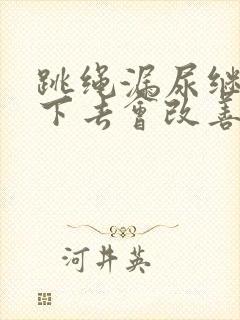 跳绳漏尿继
下去会改善
河井英